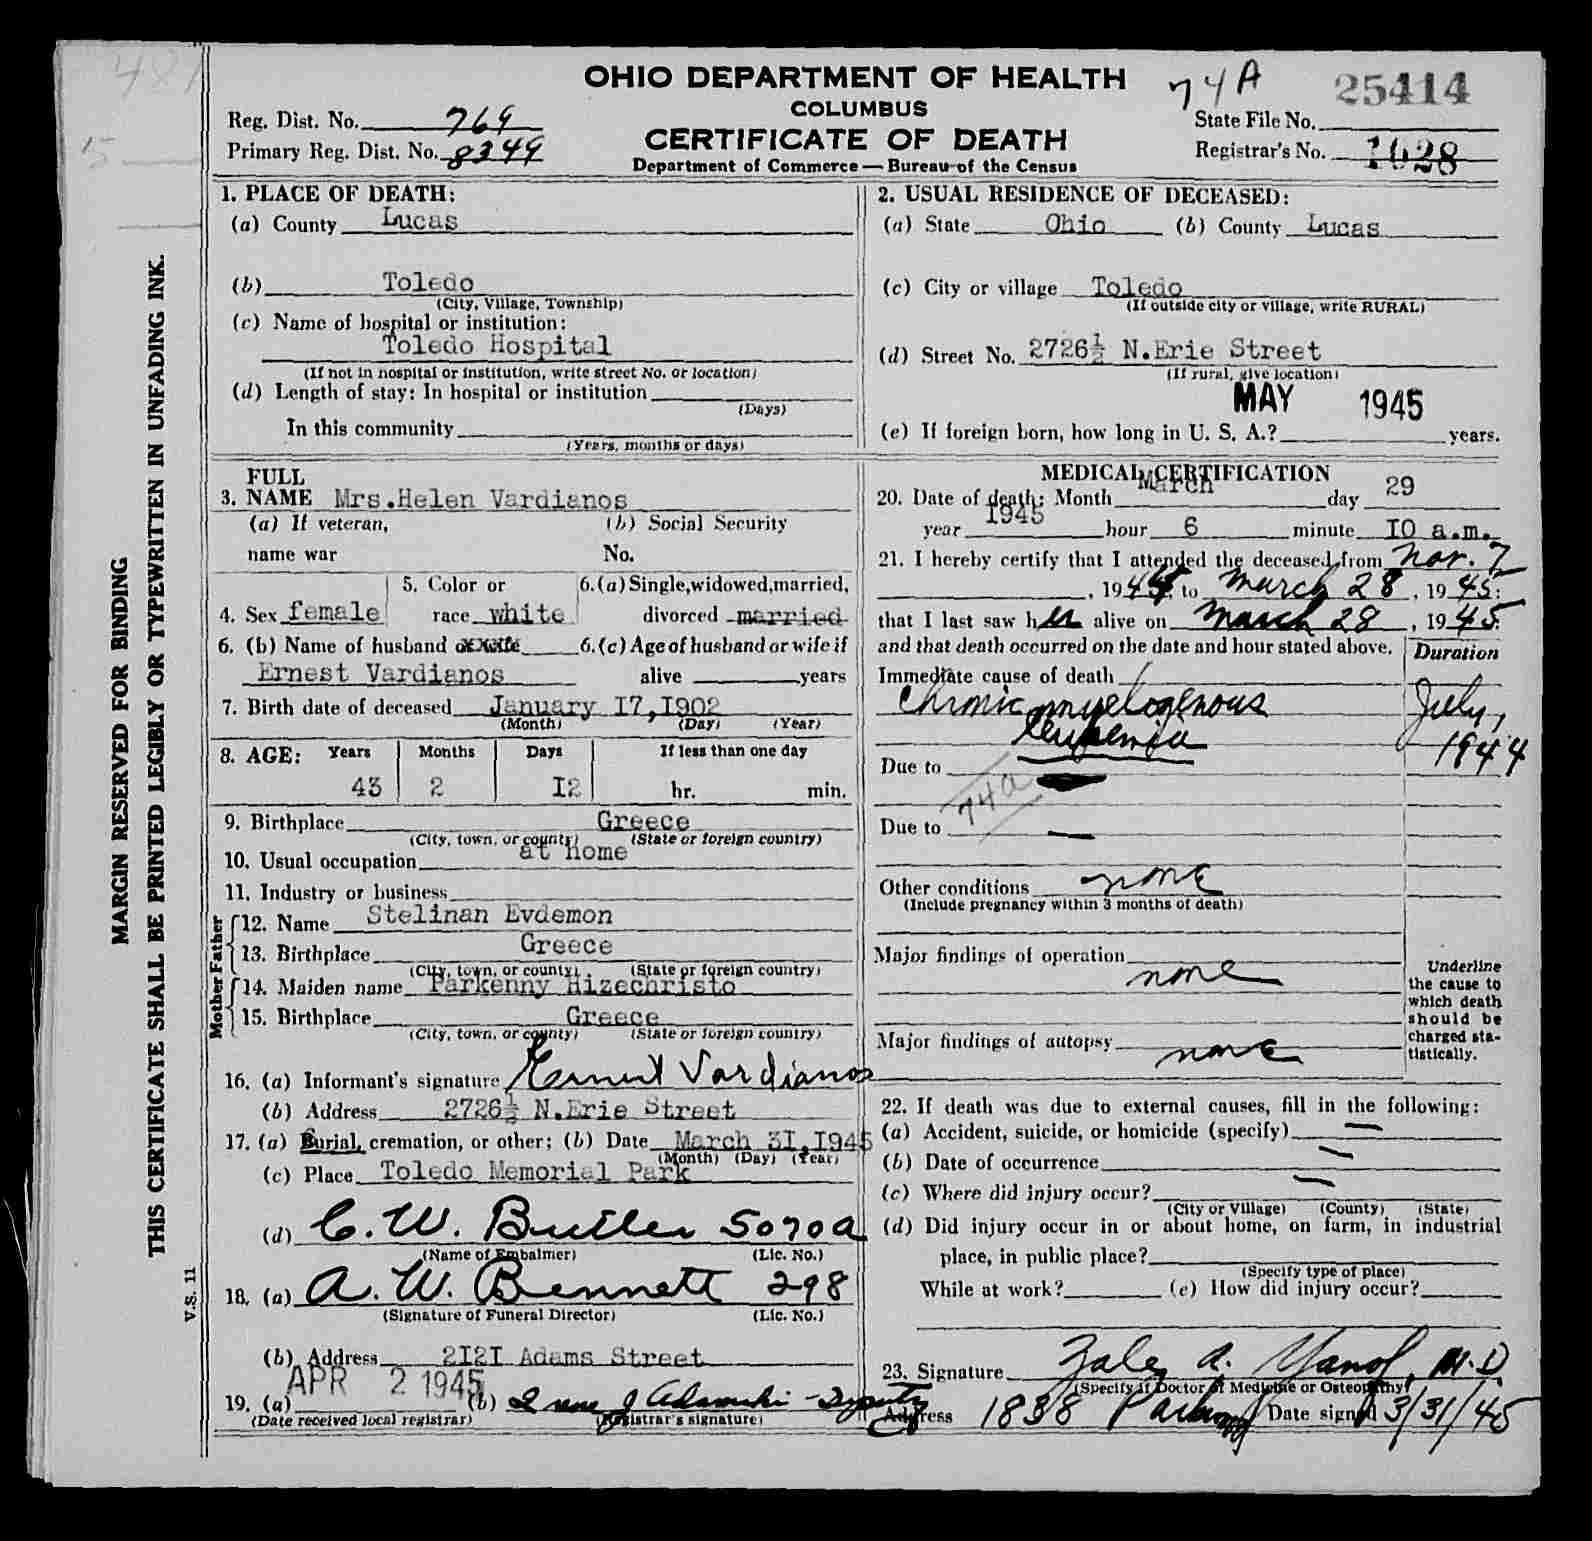 OHIO DEPARTMENT OF HEALTH
COLUMBUS
CERTIFICATE OF DEATH
Department of Commerce — Bureau of the Census
Reg. Dist. No. 769
Primary Reg. Dist. No. 8349
74A 25414
State File No.
Registrar's No. 1628
MARGIN RESERVED FOR BINDING
THIS CERTIFICATE SHALL BE PRINTED LEGIBLY OR TYPEWRITTEN IN UNFADING INK.
V.S. 11
1. PLACE OF DEATH:
(a) County Lucas
(b) Toledo
(City, Village, Township)
(c) Name of hospital or institution:
Toledo Hospital
(If not in hospital or institution, write street No. or location)
(d) Length of stay: In hospital or institution
(Days)
In this community
(Years, months or days)
2. USUAL RESIDENCE OF DECEASED:
(a) State Ohio (b) County Lucas
(c) City or village Toledo
(If outside city or village, write RURAL)
(d) Street No. 2726½ N.Erie Street
(If rural, give location)
MAY 1945
(e) If foreign born, how long in U. S. A.? years.
FULL
3. NAME Mrs.Helen Vardianos
(a) If veteran, (b) Social Security
name war No.
5. Color or 6.(a) Single, widowed, married,
4. Sex female race white divorced married
6. (b) Name of husband or wife 6.(c) Age of husband or wife if
Ernest Vardianos alive years
7. Birth date of deceased January I7,I902
(Month) (Day) (Year)
8. AGE: Years Months Days If less than one day
43 2 I2 hr. min.
9. Birthplace Greece
(City, town, or county) (State or foreign country)
10. Usual occupation at home
11. Industry or business
Father
12. Name Stelinan Evdemon
13. Birthplace Greece
(City, town, or county) (State or foreign country)
Mother
14. Maiden name Parkenny Hizechristo
15. Birthplace Greece
(City, town, or county) (State or foreign country)
16. (a) Informant's signature Ernest Vardianos
(b) Address 2726½ N.Erie Street
17. (a) Burial, cremation, or other; (b) Date March 3I,I945
(Month) (Day) (Year)
(c) Place Toledo Memorial Park
(d) C. W. Butler 5070A
(Name of Embalmer) (Lic. No.)
18. (a) A. W. Bennett 298
(Signature of Funeral Director) (Lic. No.)
(b) Address 2I2I Adams Street
APR 2 1945
19. (a) (b) Irene J Adamski - Deputy
(Date received local registrar) (Registrar's signature)
MEDICAL CERTIFICATION
20. Date of death: Month March day 29
year 1945 hour 6 minute IO a.m.
21. I hereby certify that I attended the deceased from Nov. 7
, 1944, to March 28, 1945;
that I last saw her alive on March 28, 1945.
and that death occurred on the date and hour stated above.
Duration
Immediate cause of death
Chronic myelogenous July,
leukemia 1944
Due to
74a
Due to
Other conditions none
(Include pregnancy within 3 months of death)
Major findings of operation
none
Major findings of autopsy
none
Underline
the cause to
which death
should be
charged sta-
tistically.
22. If death was due to external causes, fill in the following:
(a) Accident, suicide, or homicide (specify) —
(b) Date of occurrence —
(c) Where did injury occur? —
(City or Village) (County) (State)
(d) Did injury occur in or about home, on farm, in industrial
place, in public place?
(Specify type of place)
While at work? (e) How did injury occur?
23. Signature Zale A. Yanof, M.D
(Specify if Doctor of Medicine or Osteopathy)
Address 1838 Parkwood Date signed 3/31/45